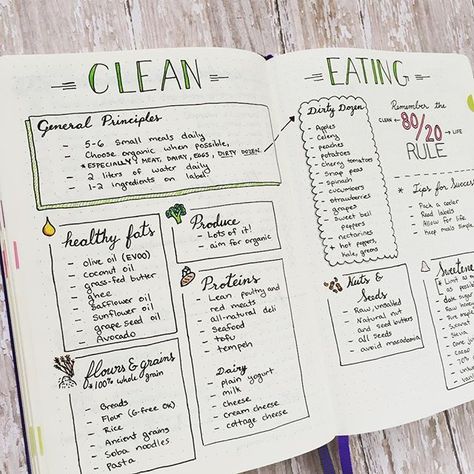 CLEAN
General Principles
- 5-6 small meals daily
- Choose organic when possible,
*ESPECIALLY MEAT, DAIRY, EGGS, DIRTY DOZEN
- 2 liters of water daily
- 1-2 ingredients on label
healthy fats
- olive oil (EVOO)
- coconut oil
- grass-fed butter
- ghee
- Safflower oil
- Sunflower oil
- grape seed oil
- Avocado
Produce
- Lots of it!
- aim for organic
Proteins
- Lean poultry and
red meats
- all-natural deli
- seafood
- tofu
- tempeh
Dairy
- plain yogurt
- milk
- cheese
- cream cheese
- cottage cheese
flours & grains
*100% whole grain*
- Breads
- Flour (G-free OK)
- Rice
- Ancient grains
- Soba noodles
- pasta
EATING
Dirty Dozen
- Apples
- Celery
- peaches
- potatoes
- cherry tomatoes
- Snap peas
- Spinach
- cucumbers
- strawberries
- grapes
- sweet bell
peppers
- nectarines
+ hot peppers,
kale, greens
Remember the
CLEAN
80/20
LIFE
RULE
* Tips for Success
- Pack a cooler
- Read labels
- Allow for life
- Keep meals simple
Nuts &
Seeds
- Raw, unsalted
- Natural nut
and seed butters
- all seeds
- avoid macadamia
Sweetene
* Limit as
as possible
- dark
- Raw